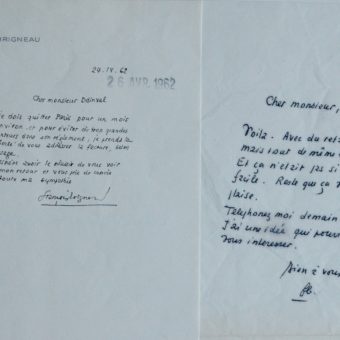 RIGNEAU
24.IV.62
26 AVR. 1962
Cher monsieur Doinval
dois quitter Paris pour un mois
environ et pour éviter de trop grandes
dans son règlement, je prends la
de vous adresser la facture,
avoir le plaisir de vous voir
mon retour et vous prie de croire
toute ma sympathie
Cher monsieur,
Voilà. Avec du reta
mais tout de même
Et ça n'était pas si
facile. Reste que ça v
plaise.
Telephonez moi demain
J'ai une idée qui pourr
vous interesser.
Bien à vous